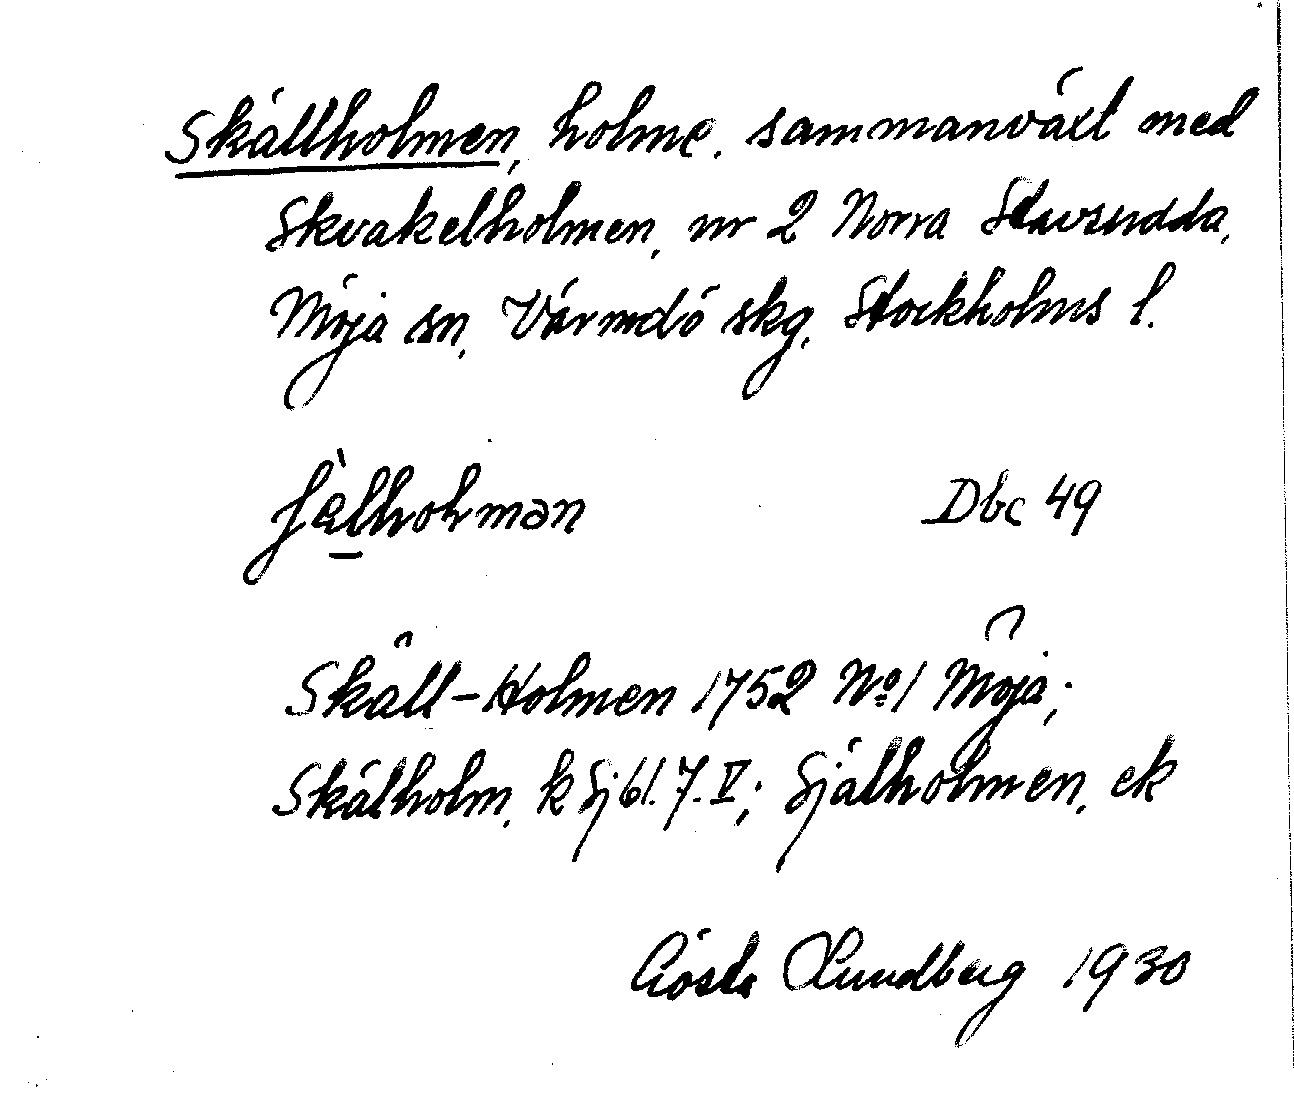 Skällholmen, holme, sammanväxt med
Skvakelholmen, nr 2 Norra Stavsudda,
Möja sn, Värmdö skg, Stockholms l.
ʃὲlholman Dbc 49
Skäll-Holmen 1752 No 1 Möja;
Skälholm, k Sj 61.7.V; Själholmen, ek
Gösta Lundberg 1930